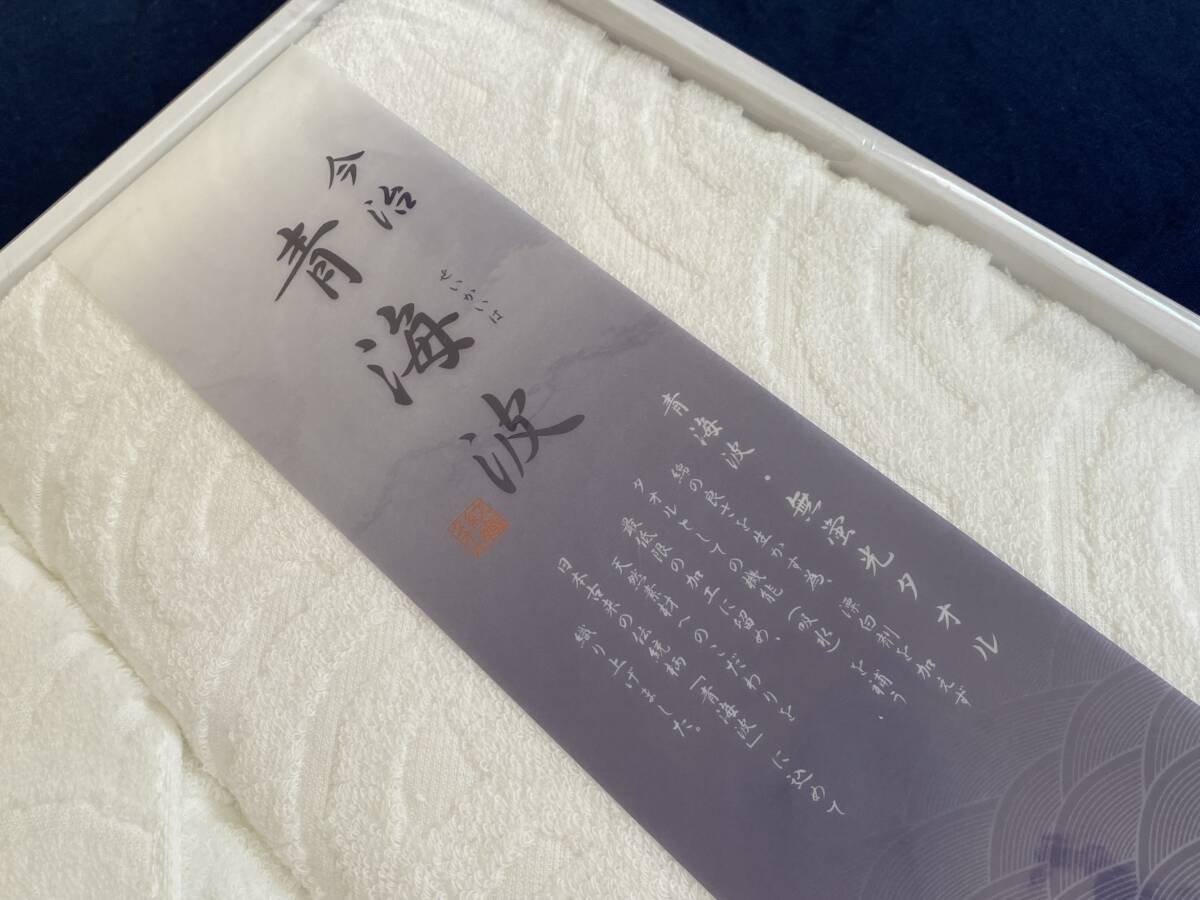 今治
青海波
せいかいは
青海波・無蛍光タオル
綿の良さを生かす為、漂白剤を加えず
タオルとしての機能(吸水)を補う、
最低限の加工に留め、
天然素材へのこだわりを
日本古来の伝統柄「青海波」に込めて
織り上げました。